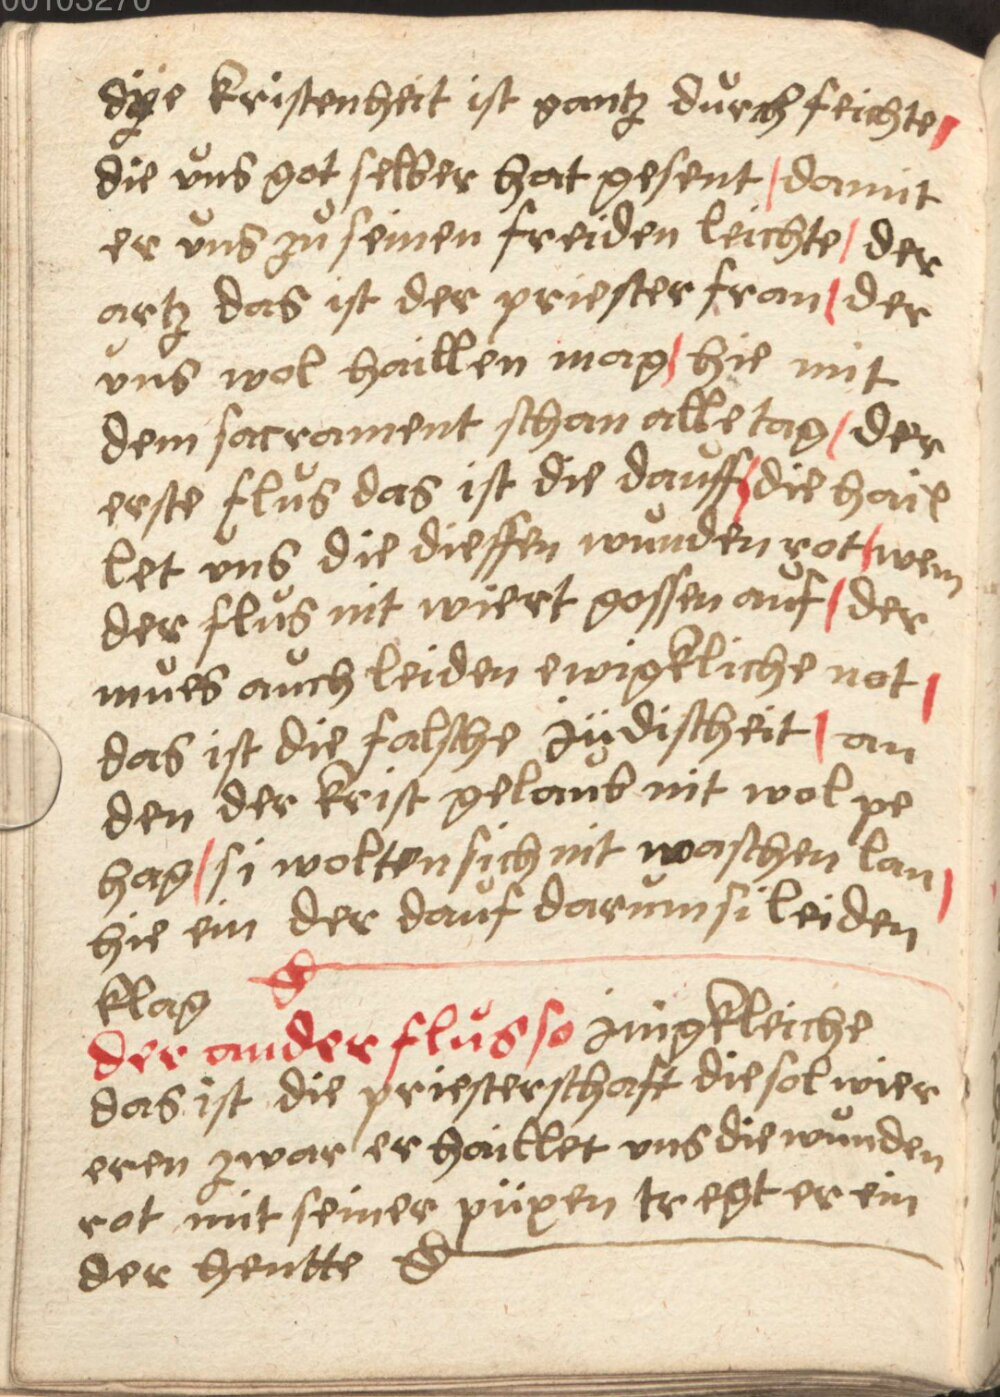 00103270
dye kristenheit ist gantz durch feichte /
die uns got selber hat gesent / damit
er uns zu seinen freiden leichte / der
artz das ist der priester fran / der
vns wol haillen mag / hie mit
dem sacrament schan alle tag / der
erste flus das ist die dauff / die hail
let vns die dieffen wunden rot / wem
der flus nit wiert gossen auf / der
mues auch leiden ewigkliche not /
das ist die falsche jüdischeit / an
den der krist gelaub nit wol pe
hag / si wolten sich nit waschen lan /
hie ein der dauf darum si leiden
klag
der ander flus so zimgkleiche
das ist die priesterschaft die sol wier
eren zwar er haillet vns die wunden
rot mit seiner püxen tregt er ein
der hentte